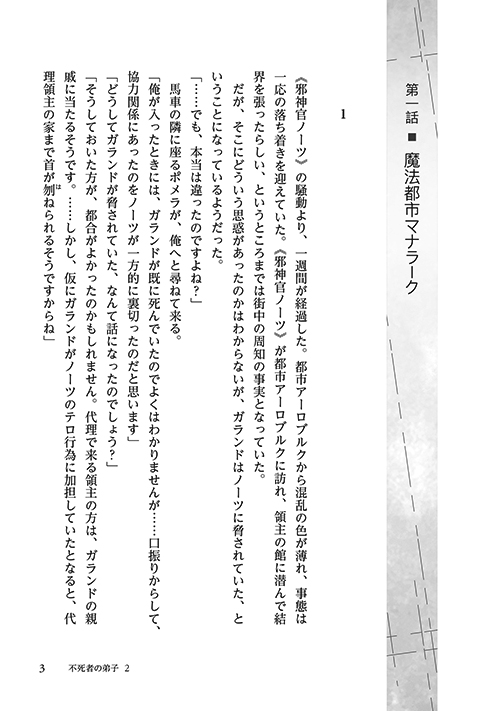 第一話 ■ 魔法都市マナラーク
1
《邪神官ノーツ》の騒動より、一週間が経過した。都市アーロブルクから混乱の色が薄れ、事態は
一応の落ち着きを迎えていた。《邪神官ノーツ》が都市アーロブルクに訪れ、領主の館に潜んで結
界を張ったらしい、というところまでは街中の周知の事実となっていた。
だが、そこにどういう思惑があったのかはわからないが、ガランドはノーツに脅されていた、と
いうことになっているようだった。
「……でも、本当は違ったのですよね？」
馬車の隣に座るポメラが、俺へと尋ねて来る。
「俺が入ったときには、ガランドが既に死んでいたのでよくはわかりませんが……口振りからして、
協力関係にあったのをノーツが一方的に裏切ったのだと思います」
「どうしてガランドが脅されていた、なんて話になったのでしょう？」
「そうしておいた方が、都合がよかったのかもしれません。代理で来る領主の方は、ガランドの親
戚に当たるそうです。……しかし、仮にガランドがノーツのテロ行為に加担していたとなると、代
理領主の家まで首が刎ねられるそうですからね」
は
3 不死者の弟子 2